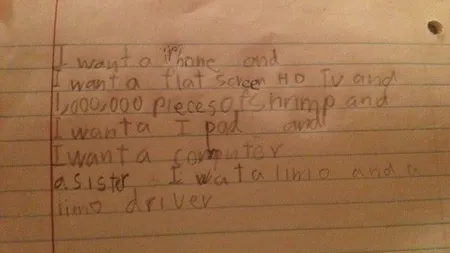 I want a iPhone and
I want a flat screen HD TV and
1,000,000 pieces of shrimp and
I want a I pad and
I want a computer
a sister I wat a limo and a
limo driver